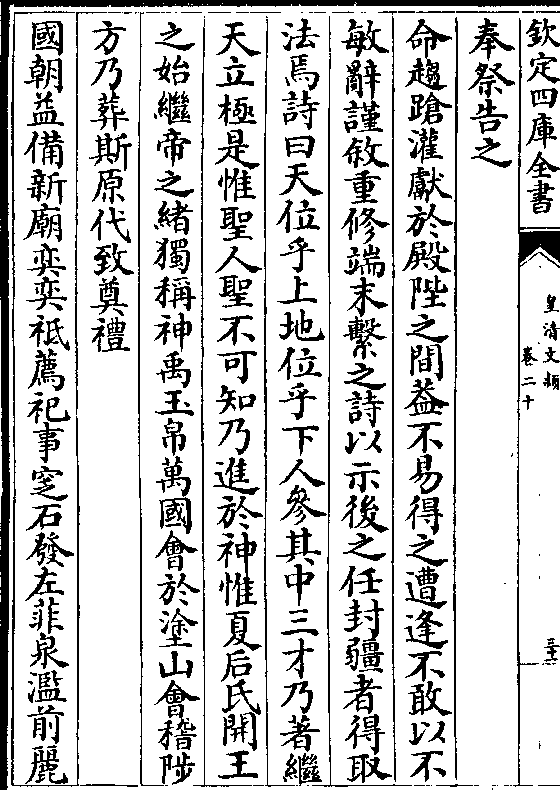 欽定四庫全書
皇清文穎
卷二十
奉祭告之
命趨蹌灌獻於殿陛之間葢不易得之遭逢不敢以不
敏辭謹敘重修端末繫之詩以示後之任封疆者得取
法焉詩曰天位乎上地位乎下人參其中三才乃著繼
天立極是惟聖人聖不可知乃進於神惟夏后氏開王
之始繼帝之緒獨稱神禹玉帛萬國會於塗山會稽陟
方乃葬斯原代致奠禮
國朝益備新廟奕奕祗薦祀事窆石發左菲泉濫前麗